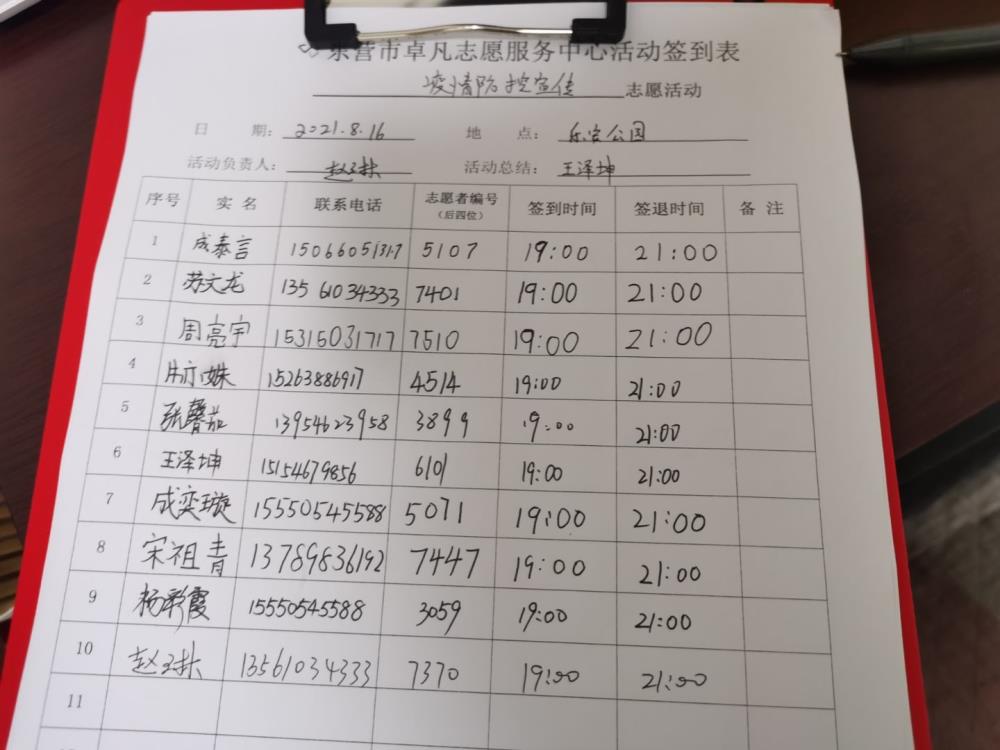 东营市卓凡志愿服务中心活动签到表
疫情防控宣传 志愿活动
日 期: 2021.8.16 地 点: 乐安公园
活动负责人: 赵玉林 活动总结: 王泽坤
序号 实 名 联系电话 志愿者编号 (后四位) 签到时间 签退时间 备 注
1 成泰言 15066051317 5107 19:00 21:00
2 苏文龙 13561034333 7401 19:00 21:00
3 周亮宇 15315031717 7510 19:00 21:00
4 15263886917 4514 19:00 21:00
5 张馨茹 13954623958 3899 19:00 21:00
6 王泽坤 15154679856 6101 19:00 21:00
7 成奕璇 15550545588 5071 19:00 21:00
8 宋祖青 13789836192 7447 19:00 21:00
9 杨彩霞 15550545588 3059 19:00 21:00
10 赵玉林 13561034333 7370 19:00 21:00
11